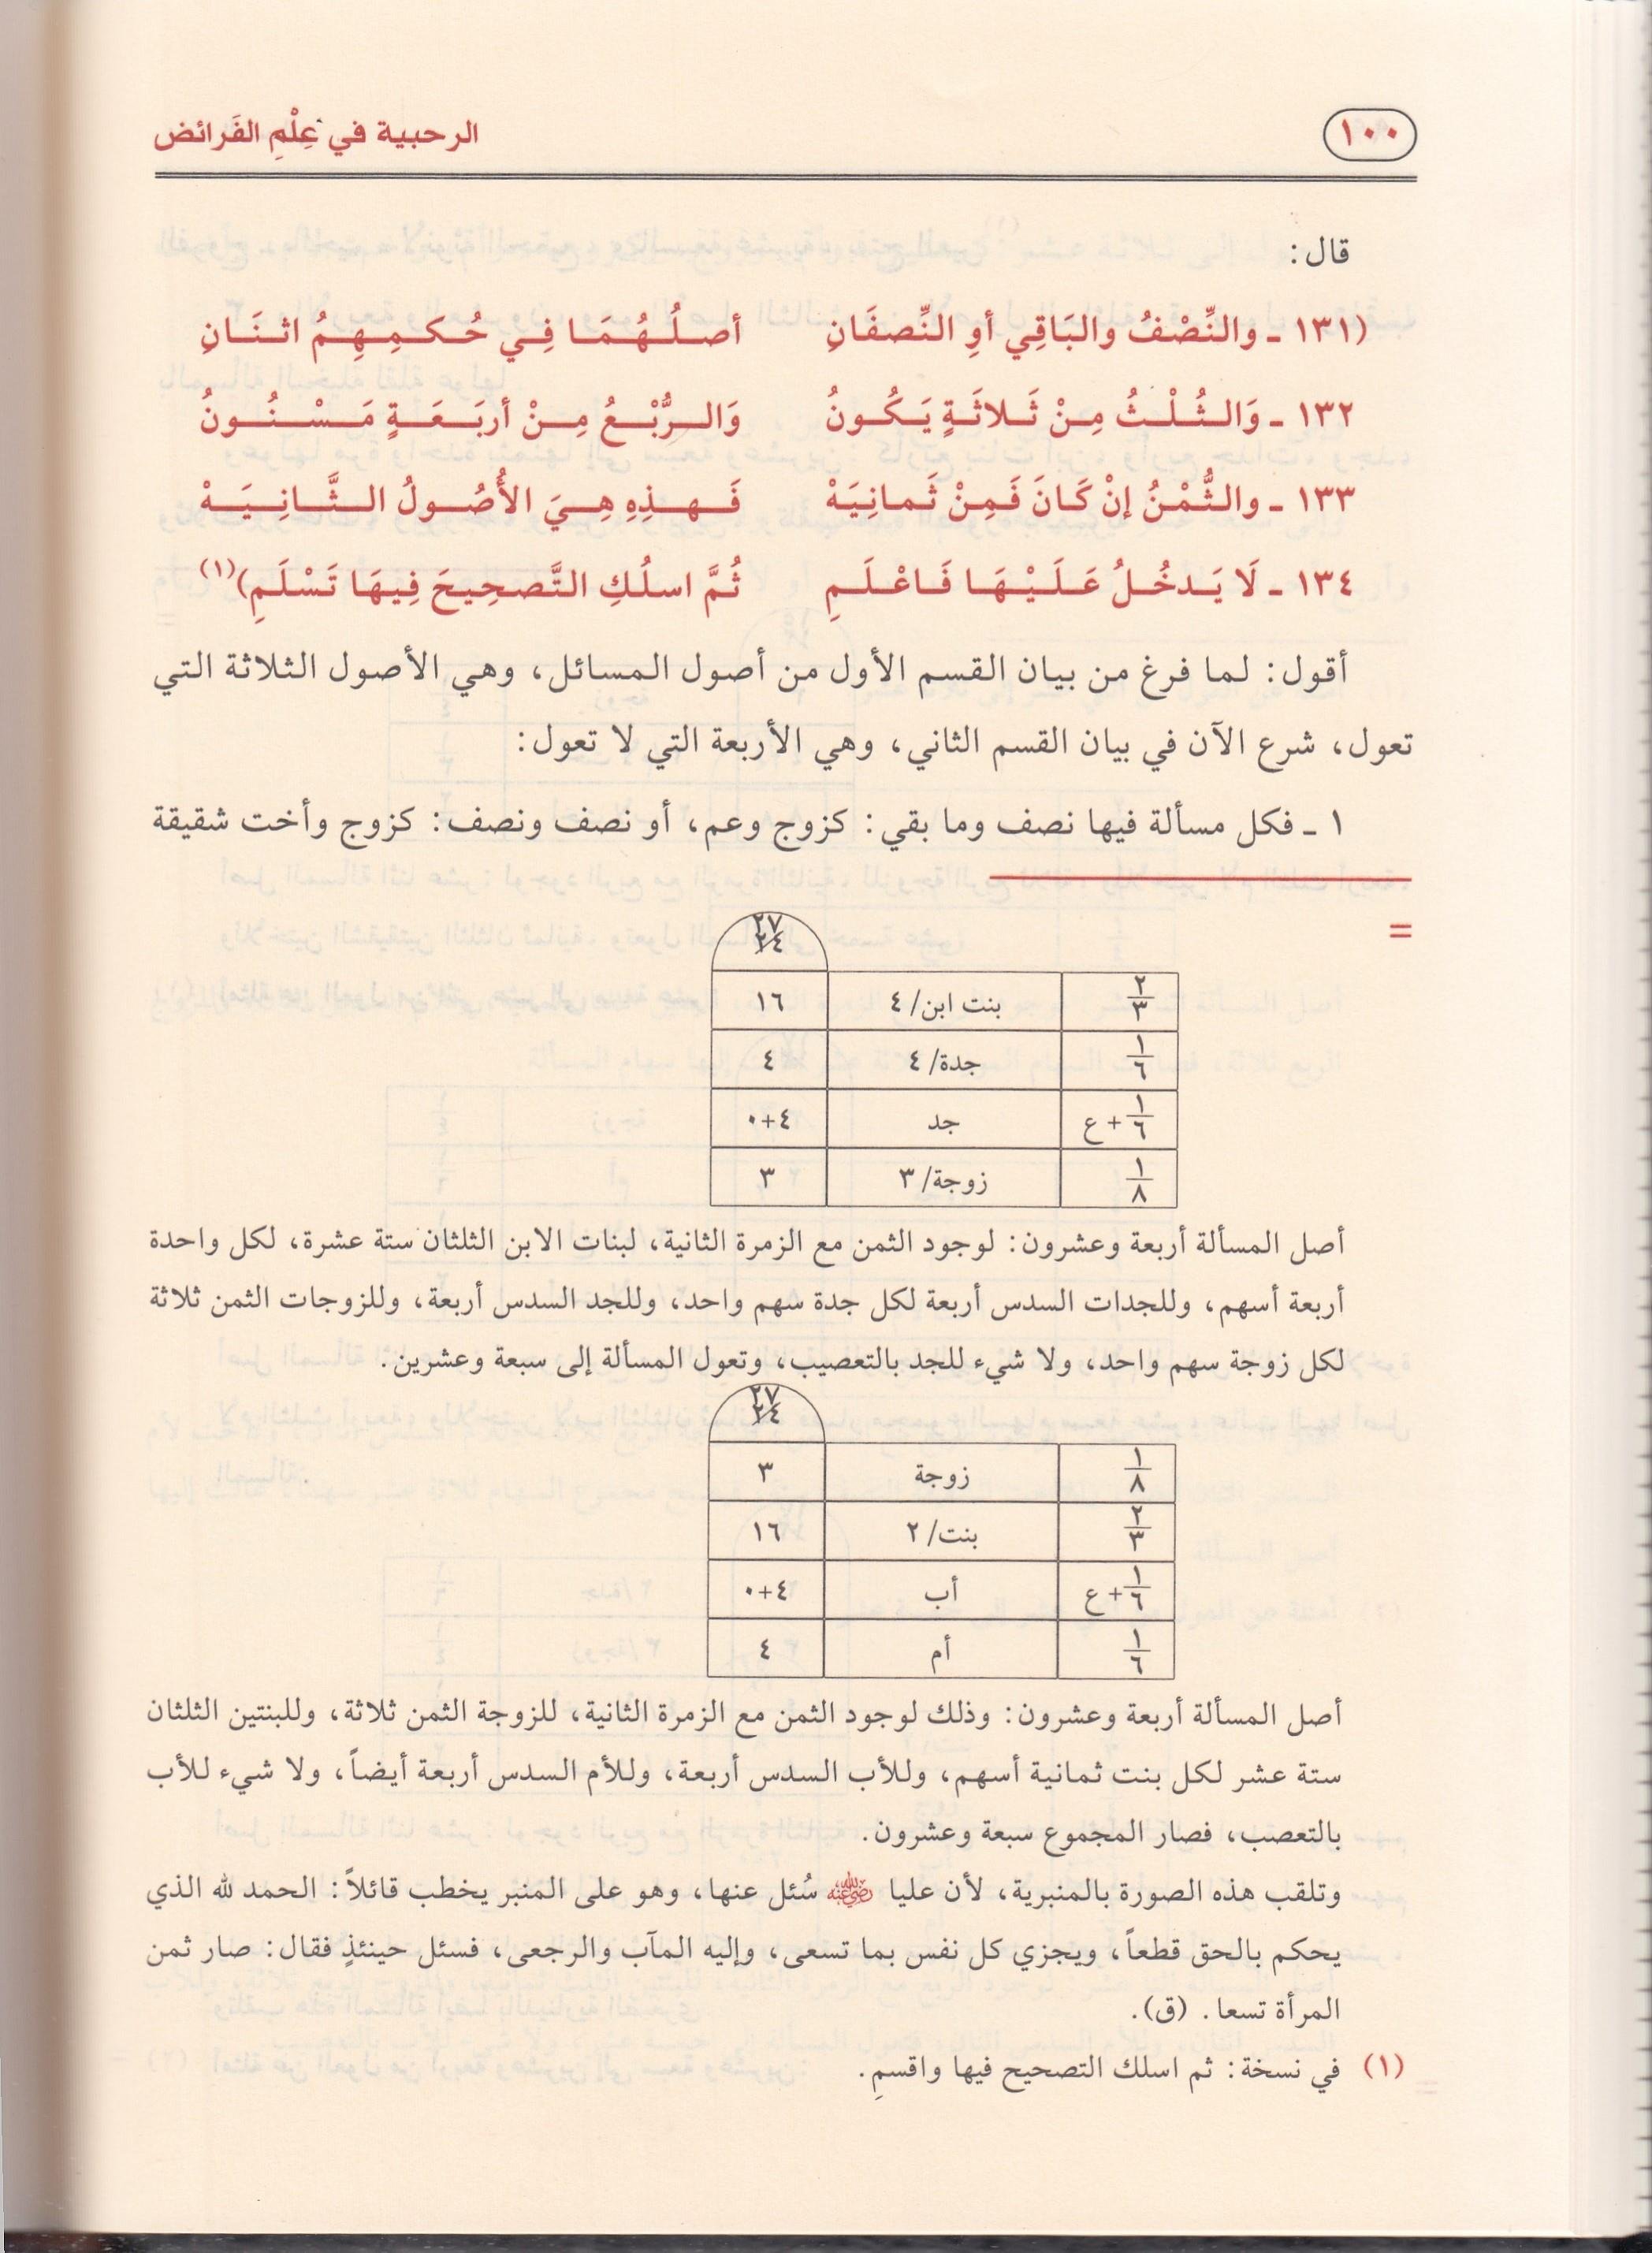 ١٠٠
الرحبية في عِلْمِ الفَرائض
قال:
(١٣١ ـ والنِّصْفُ والبَاقِي أوِ النِّصفَانِ أصلُهُمَا فِي حُكمِهِمُ اثنَانِ
١٣٢ ـ وَالثُلْثُ مِنْ ثَلاثَةٍ يَكُونُ وَالرُّبْعُ مِنْ أربَعَةٍ مَسْنُونُ
١٣٣ ـ والثُّمْنُ إنْ كَانَ فَمِنْ ثَمانِيَهْ فَهذِهِ هِيَ الأُصُولُ الثَّانِيَهْ
١٣٤ ـ لَا يَدخُلُ عَلَيْهَا فَاعْلَمِ ثُمَّ اسلُكِ التَّصحِيحَ فِيهَا تَسْلَمِ)(١)
أقول: لما فرغ من بيان القسم الأول من أصول المسائل، وهي الأصول الثلاثة التي
تعول، شرع الآن في بيان القسم الثاني، وهي الأربعة التي لا تعول:
١ ـ فكل مسألة فيها نصف وما بقي: كزوج وعم، أو نصف ونصف: كزوج وأخت شقيقة
=
٢٧
٢٤
٢/٣ بنت ابن/ ٤ ١٦
١/٦ جدة/ ٤ ٤
١/٦ + ع جد ٤+٠
١/٨ زوجة/ ٣ ٣
أصل المسألة أربعة وعشرون: لوجود الثمن مع الزمرة الثانية، لبنات الابن الثلثان ستة عشرة، لكل واحدة
أربعة أسهم، وللجدات السدس أربعة لكل جدة سهم واحد، وللجد السدس أربعة، وللزوجات الثمن ثلاثة
لكل زوجة سهم واحد، ولا شيء للجد بالتعصيب، وتعول المسألة إلى سبعة وعشرين.
٢٧
٢٤
١/٨ زوجة ٣
٢/٣ بنت/ ٢ ١٦
١/٦ + ع أب ٤+٠
١/٦ أم ٤
أصل المسألة أربعة وعشرون: وذلك لوجود الثمن مع الزمرة الثانية، للزوجة الثمن ثلاثة، وللبنتين الثلثان
ستة عشر لكل بنت ثمانية أسهم، وللأب السدس أربعة، وللأم السدس أربعة أيضاً، ولا شيء للأب
بالتعصب، فصار المجموع سبعة وعشرون.
وتلقب هذه الصورة بالمنبرية، لأن عليا رضي الله عنه سُئل عنها، وهو على المنبر يخطب قائلاً: الحمد لله الذي
يحكم بالحق قطعاً، ويجزي كل نفس بما تسعى، وإليه المآب والرجعى، فسئل حينئذٍ فقال: صار ثمن
المرأة تسعا. (ق).
(١) في نسخة: ثم اسلك التصحيح فيها واقسمِ.